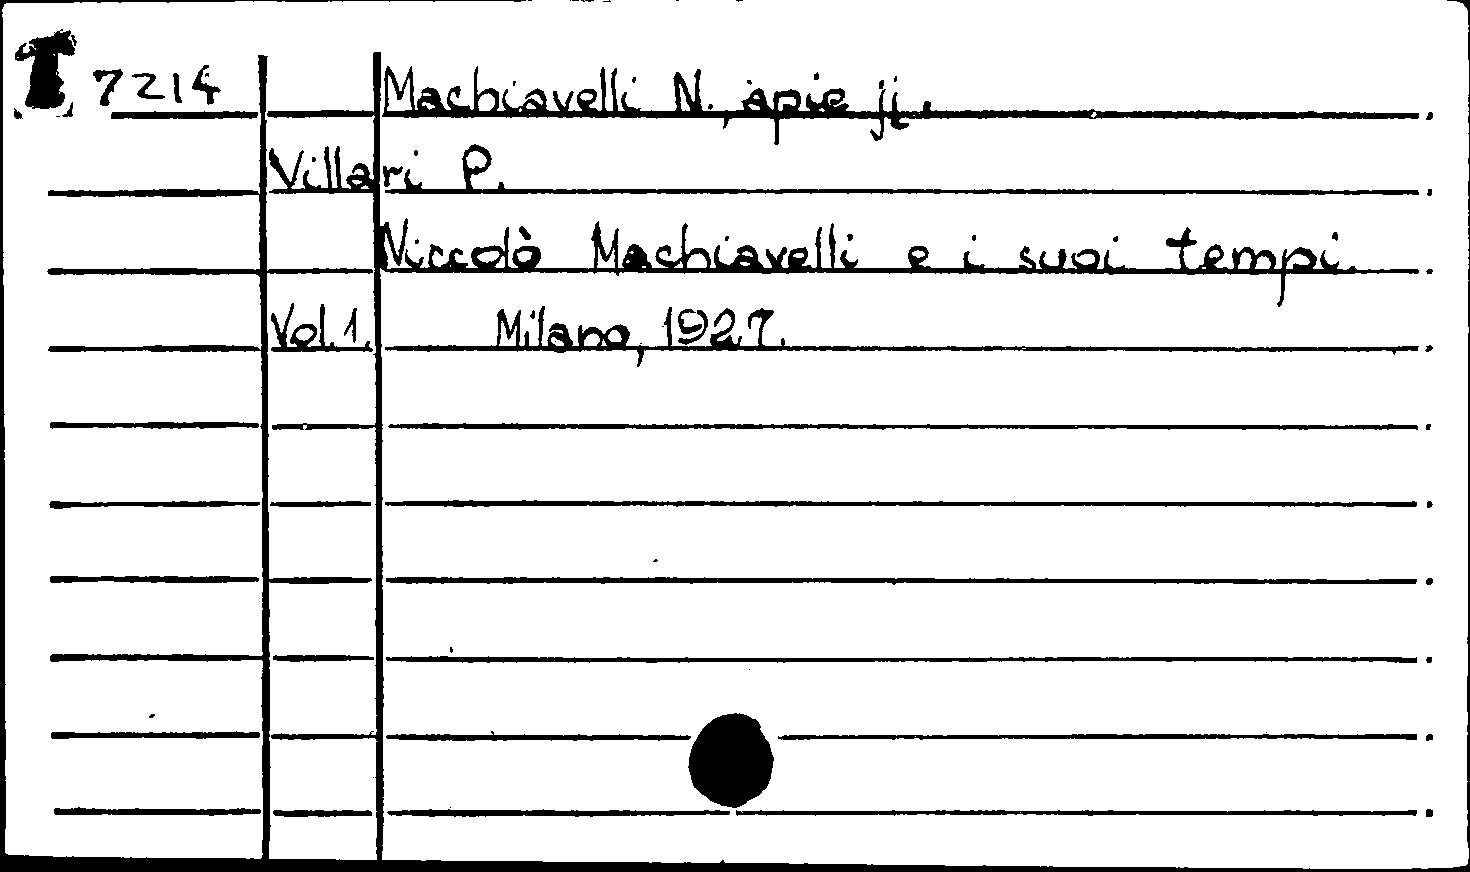 I 7214 Machiavelli N., apie jį.
Villari P.
Niccolò Machiavelli e i suoi tempi.
Vol. 1. Milano, 1927.